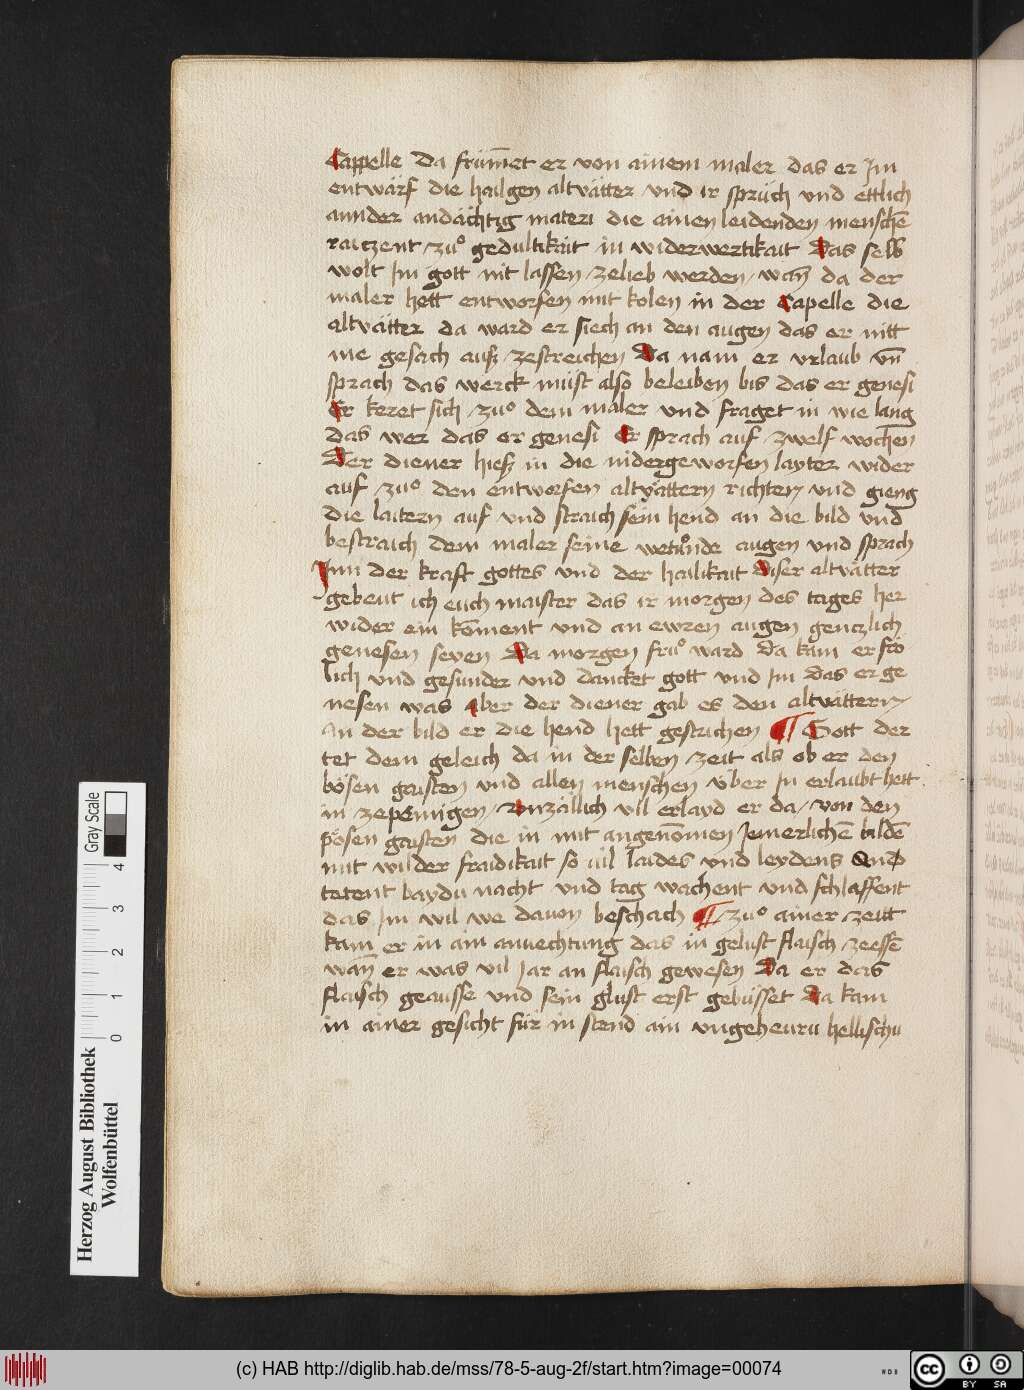 Cappelle Da frümet̄ er von ainem maler das er Im
entwarf die hailgen altvätter vnd ir sprüch vnd ettlich
annder andächtig materi die ainen leidenden menschē
raiczent zuͦ gedultikait in widerwertikait Das selb
wolt Im gott nit lassen zelieb werden wan̄ da der
maler hett entworfen mit kolen in der Capelle die
altvätter da ward er siech an den augen das er nitt
me gesach auſz zestreichen Da nam er vrlaub vn̄
sprach das werck müst also beleiben bis das er genesi
Er keret sich zuͦ dem maler vnd fraget in wie lang
das wer das er genesi Er sprach auf zwelf wochen
Der diener hieſz in die nidergeworfen layter wider
auf zuͦ den entworfen altvättern richten vnd gieng
die laitern auf vnd straich sein hend an die bild vnd
bestraich dem maler seine wetuͦnde augen vnd sprach
Inn der kraft gottes vnd der hailikait diser altvätter
gebeut ich euch maister das ir morgen des tages her
wider ein kom̄ent vnd an ewren augen genczlich
genesen seyen Da morgen fruͦ ward Da kam er frö
lich vnd gesunder vnd dancket gott vnd Im das er ge
nesen was Aber der diener gab es den altvättern
An der bild er die hend hett gestrichen ¶ Gott der
tet dem geleich da in der selben zeit als ob er den
bösen gaisten vnd allen menschen über In erlaubt hett
in zepeinigen vnzällich vil erlayd er da von den
pösen gaisten die in mit angenom̄en Iemerlichē bildē
mit wilder fraidikait so vil laides vnd leydens
tatent baydu nacht vnd tag wachent vnd schlaffent
das Im wil we dauon beschach ¶ zuͦ ainer zeitt
kam er in ain anvechtung das in gelust flaisch zeessē
wan̄ er was vil Jar an flaisch gewesen Da er das
flaisch geausse vnd sein glust erst gebüsset Da kam
in ainer gesicht für in stend ain vngeheuru hellischu
Herzog August Bibliothek
Wolfenbüttel
Gray Scale
0 1 2 3 4
(c) HAB http://diglib.hab.de/mss/78-5-aug-2f/start.htm?image=00074
WDB
cc BY SA